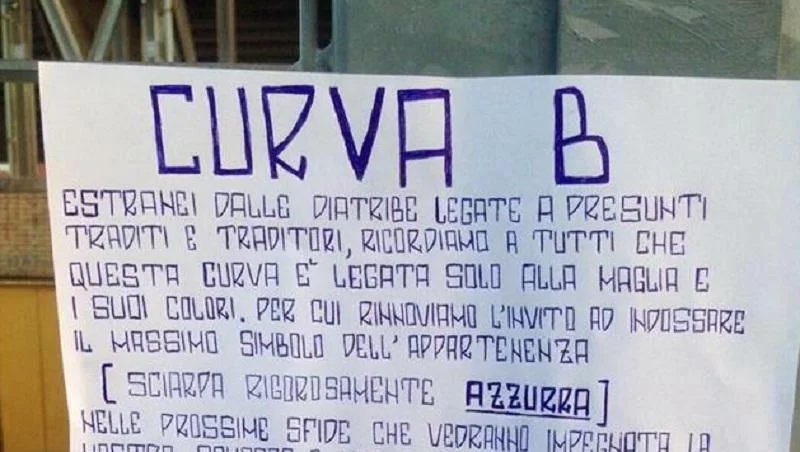 CURVA B
ESTRANEI DALLE DIATRIBE LEGATE A PRESUNTI
TRADITI E TRADITORI, RICORDIAMO A TUTTI CHE
QUESTA CURVA E' LEGATA SOLO ALLA MAGLIA E
I SUOI COLORI. PER CUI RINNOVIAMO L'INVITO AD INDOSSARE
IL MASSIMO SIMBOLO DELL'APPARTENENZA
[SCIARPA RIGOROSAMENTE AZZURRA]
NELLE PROSSIME SFIDE CHE VEDRANNO IMPEGNATA LA